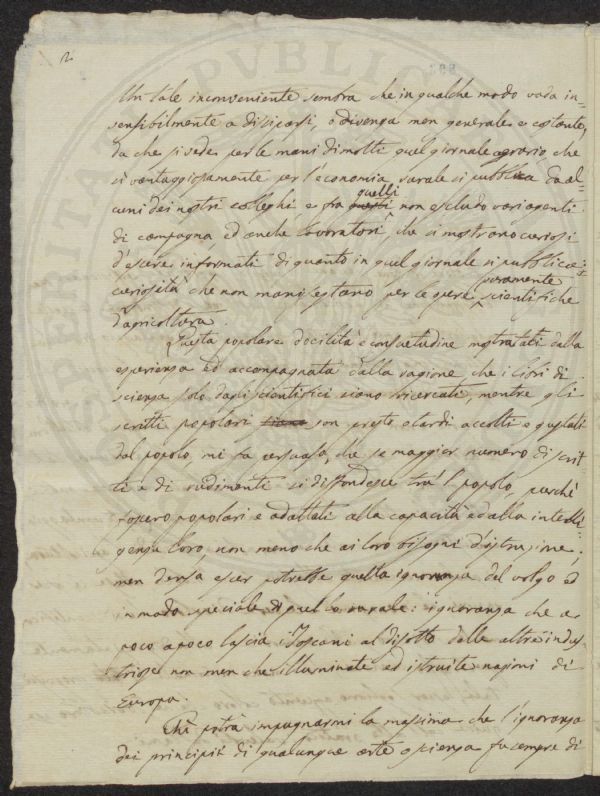 2.
Un tale inconveniente sembra che in qualche modo vada in-
sensibilmente a dissiparsi, o divenga men generale e costante,
da che si vede per le mani di molti quel giornale agrario, che
sì vantaggiosamente per l'economia rurale si pubblica da al-
cuni dei nostri colleghi, e fra questi quelli non escludo varj agenti
di campagna, ed anche lavoratori, che si mostrano curiosi
d'essere informati di quanto in quel giornale si pubblica:
curiosità che non manifestano per le opere puramente scientifiche
d'agricoltura.
Questa popolare docilità e consuetudine mostrataci dalla
esperienza ed accompagnata dalla ragione che i libri di
scienza solo dagli scientifici siano ricercati, mentre gli
scritti popolari siano son presto o tardi accolti e gustati
dal popolo, mi fa persuaso, che se maggior numero di scrit-
ti e di rudimenti si diffondesse tra 'l popolo, purchè
fossero popolari e adattati alla capacità ed alla intelli-
genza loro, non meno che ai loro bisogni d'istruzione,
men densa esser potrebbe quella ignoranza del volgo ed
in modo speciale di quello rurale: ignoranza che a
poco a poco lascia i Toscani al disotto delle altre indus-
triose non men che illuminate ed istruite nazioni di
Europa.
Chi potrà impugnarmi la massima che l'ignoranza
dei principii di qualunque arte o scienza fu sempre di